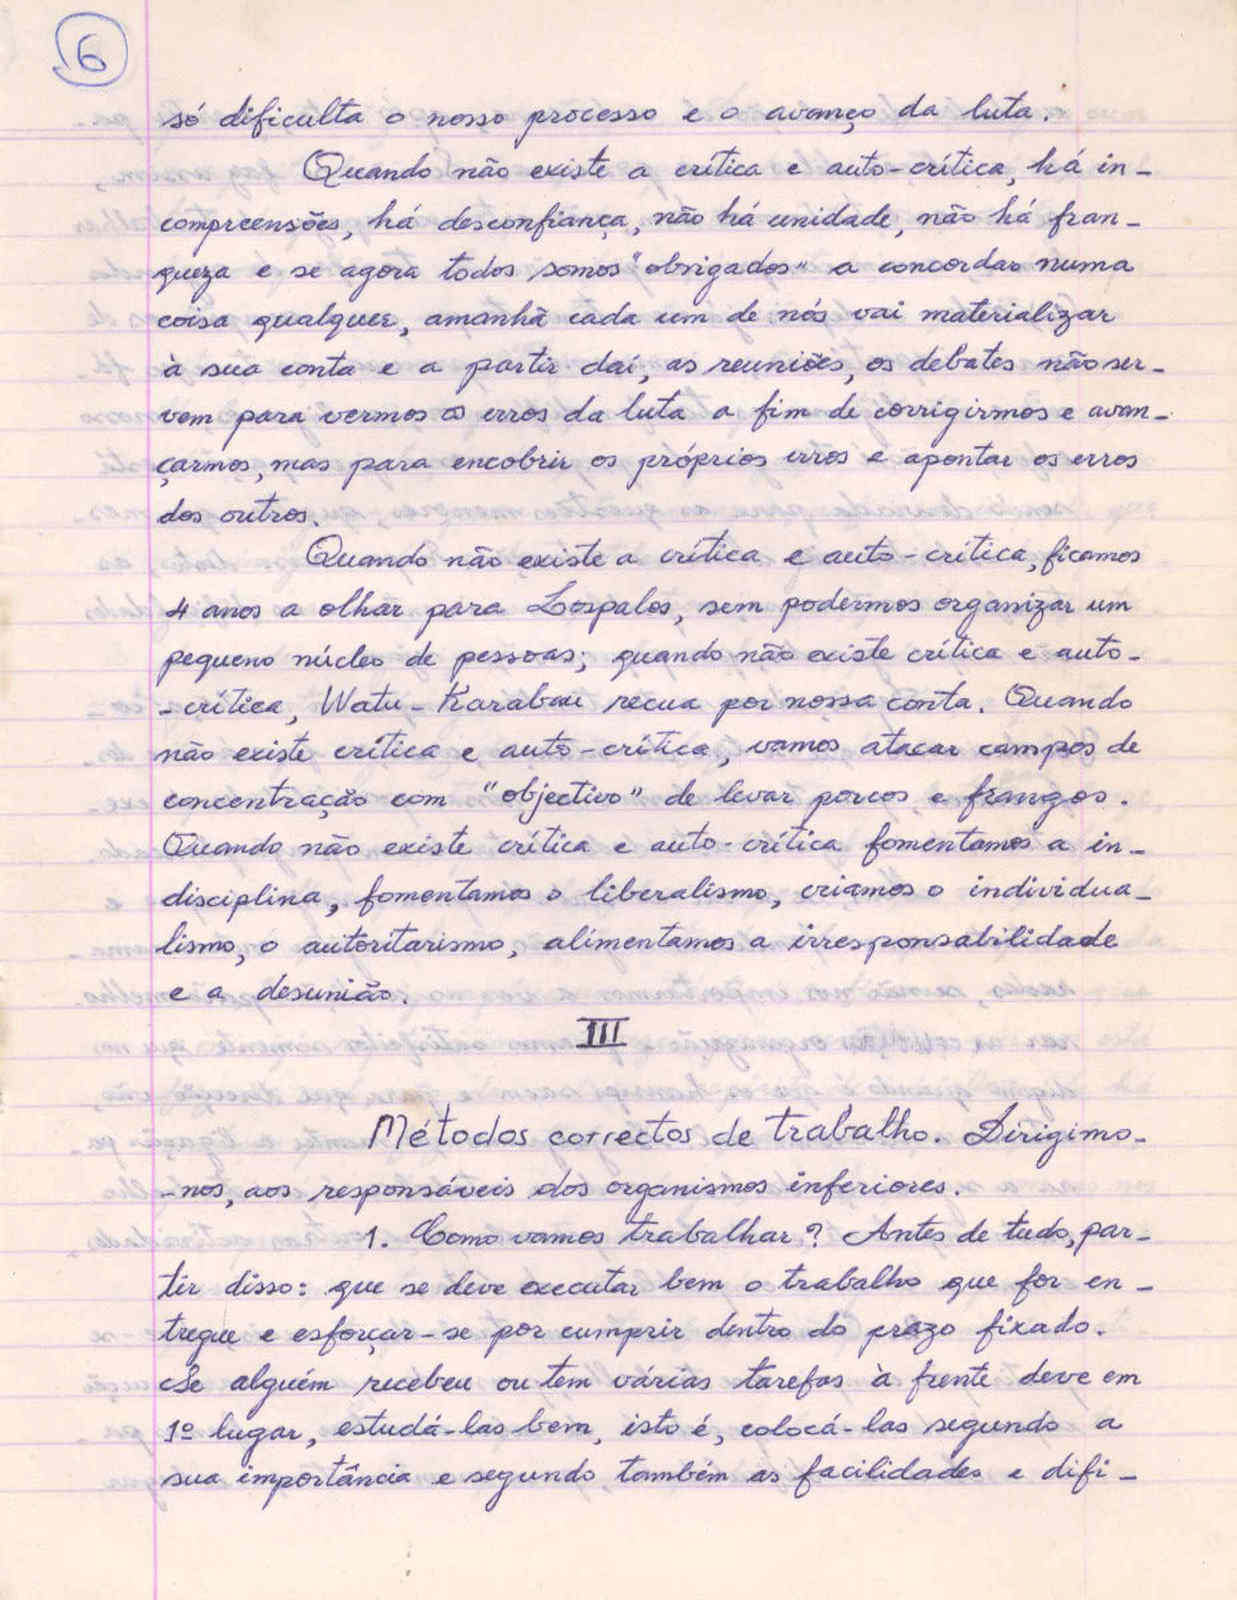 6
só dificulta o nosso processo e o avanço da luta.
Quando não existe a crítica e auto-crítica, há in-
compreensões, há desconfiança, não há unidade, não há fran-
queza e se agora todos somos "obrigados" a concordar numa
coisa qualquer, amanhã cada um de nós vai materializar
à sua conta e a partir daí, as reuniões, os debates não ser-
vem para vermos os erros da luta a fim de corrigirmos e avan-
çarmos, mas para encobrir os próprios erros e apontar os erros
dos outros.
Quando não existe a crítica e auto-crítica, ficamos
4 anos a olhar para Lospalos, sem podermos organizar um
pequeno núcleo de pessoas; quando não existe crítica e auto-
-crítica, Watu-Karabau recua por nossa conta. Quando
não existe crítica e auto-crítica, vamos atacar campos de
concentração com "objectivo" de levar porcos e frangos.
Quando não existe crítica e auto-crítica fomentamos a in-
disciplina, fomentamos o liberalismo, criamos o individua-
lismo, o autoritarismo, alimentamos a irresponsabilidade
e a desunião.
III
Métodos correctos de trabalho. Dirigimo-
-nos, aos responsáveis dos organismos inferiores.
1. Como vamos trabalhar? Antes de tudo, par-
tir disso: que se deve executar bem o trabalho que for en-
tregue e esforçar-se por cumprir dentro do prazo fixado.
Se alguém recebeu ou tem várias tarefas à frente deve em
1º lugar, estudá-las bem, isto é, colocá-las segundo a
sua importância e segundo, também as facilidades e difi-